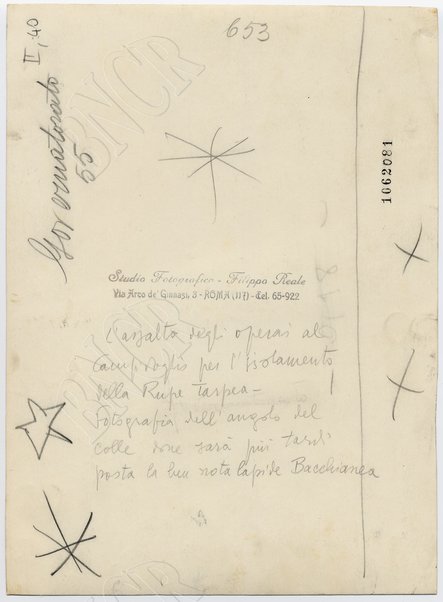 653
II, 40
Governatorato
55
1062081
Studio Fotografico - Filippo Reale
Via Arco de' Ginnasi, 8 - ROMA (117) - Tel. 65-922
L'assalto degli operai al
Campidoglio per l'isolamento
della Rupe Tarpea -
Fotografia dell'angolo del
colle dove sarà più tardi
posta la ben nota lapide Bacchianea
BNCR
BNCR
BNCR